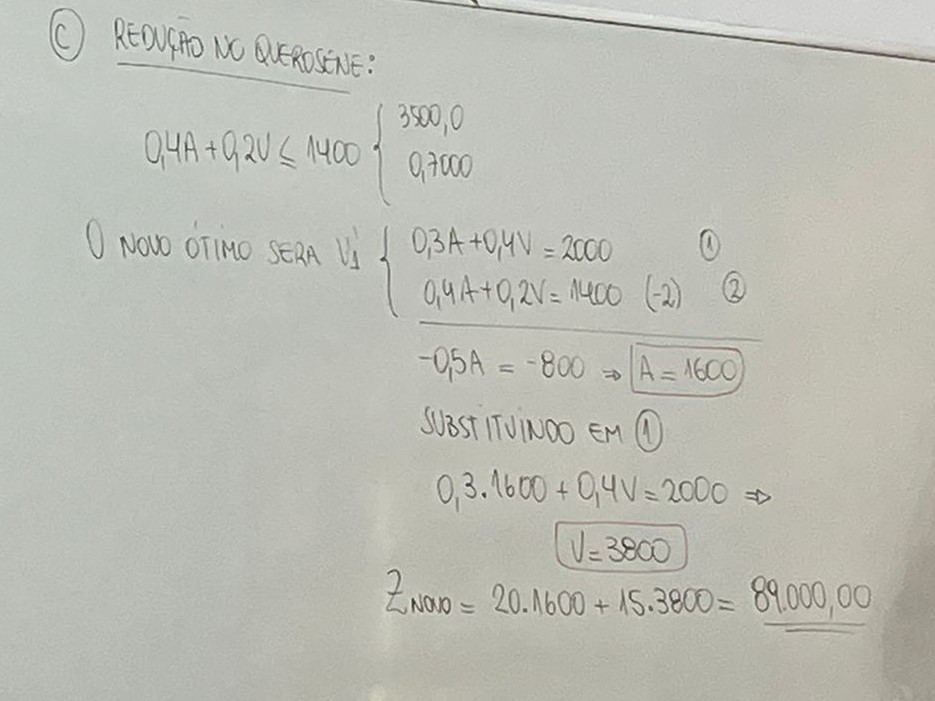 Ⓒ REDUÇÃO NO QUEROSENE:
0,4A+0,2V ≤ 1400 { 3500,0
0,7000
O NOVO ÓTIMO SERA V1 { 0,3A+0,4V = 2000 ①
0,4A+0,2V = 1400 (-2) ②
-0,5A = -800 ⇒ A = 1600
SUBSTITUINDO EM ①
0,3.1600 + 0,4V = 2000 ⇒
V = 3800
Z NOVO = 20.1600 + 15.3800 = 89.000,00